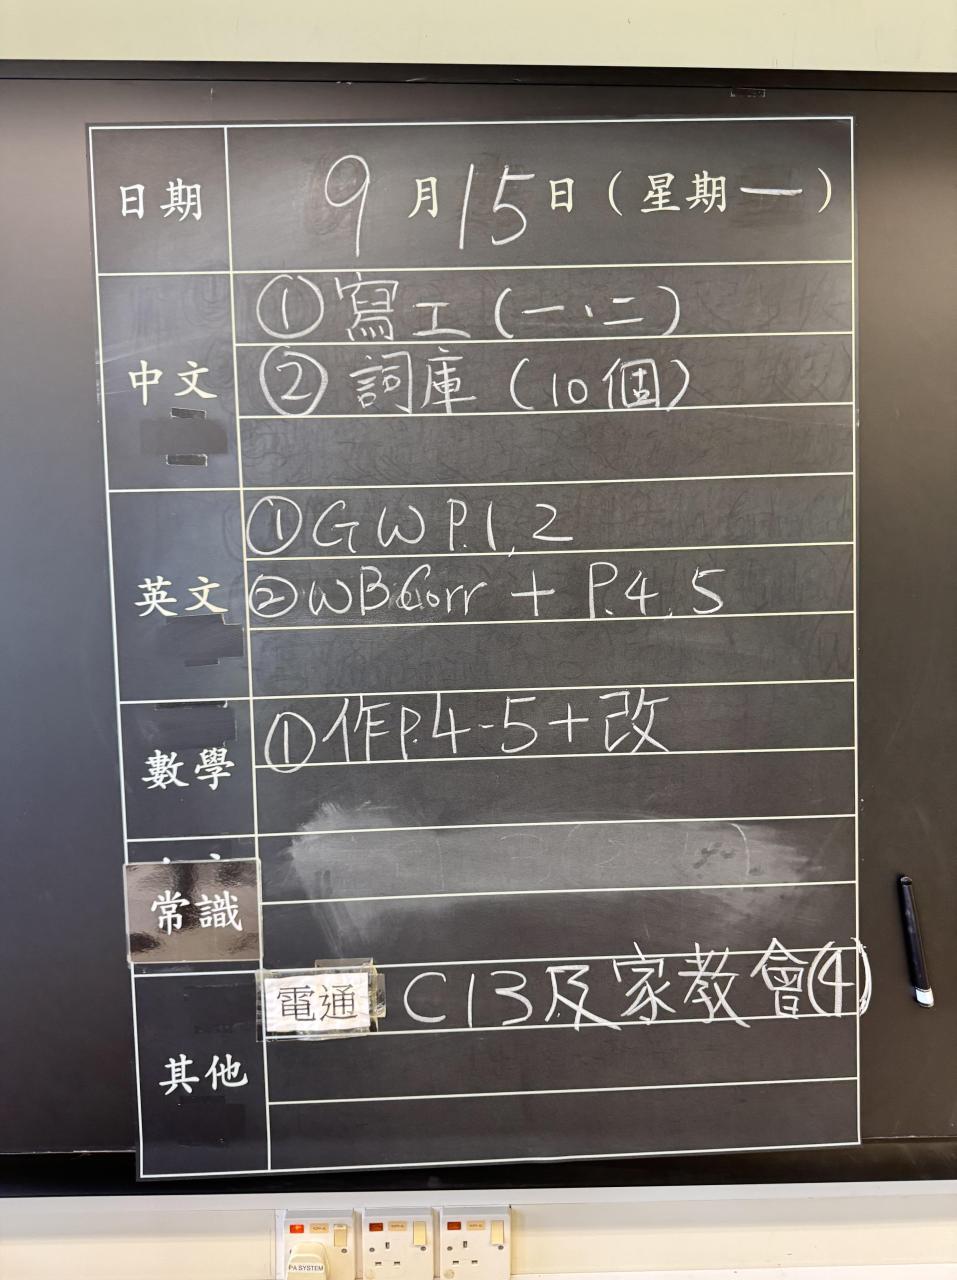 日期 9月15日（星期一）
中文
①寫工（一、二）
②詞庫（10個）
英文
①GW P.1,2
②WB Corr + P.4,5
數學
①作P.4-5+改
常識
其他
電通 C13及家教會(4)
PA SYSTEM